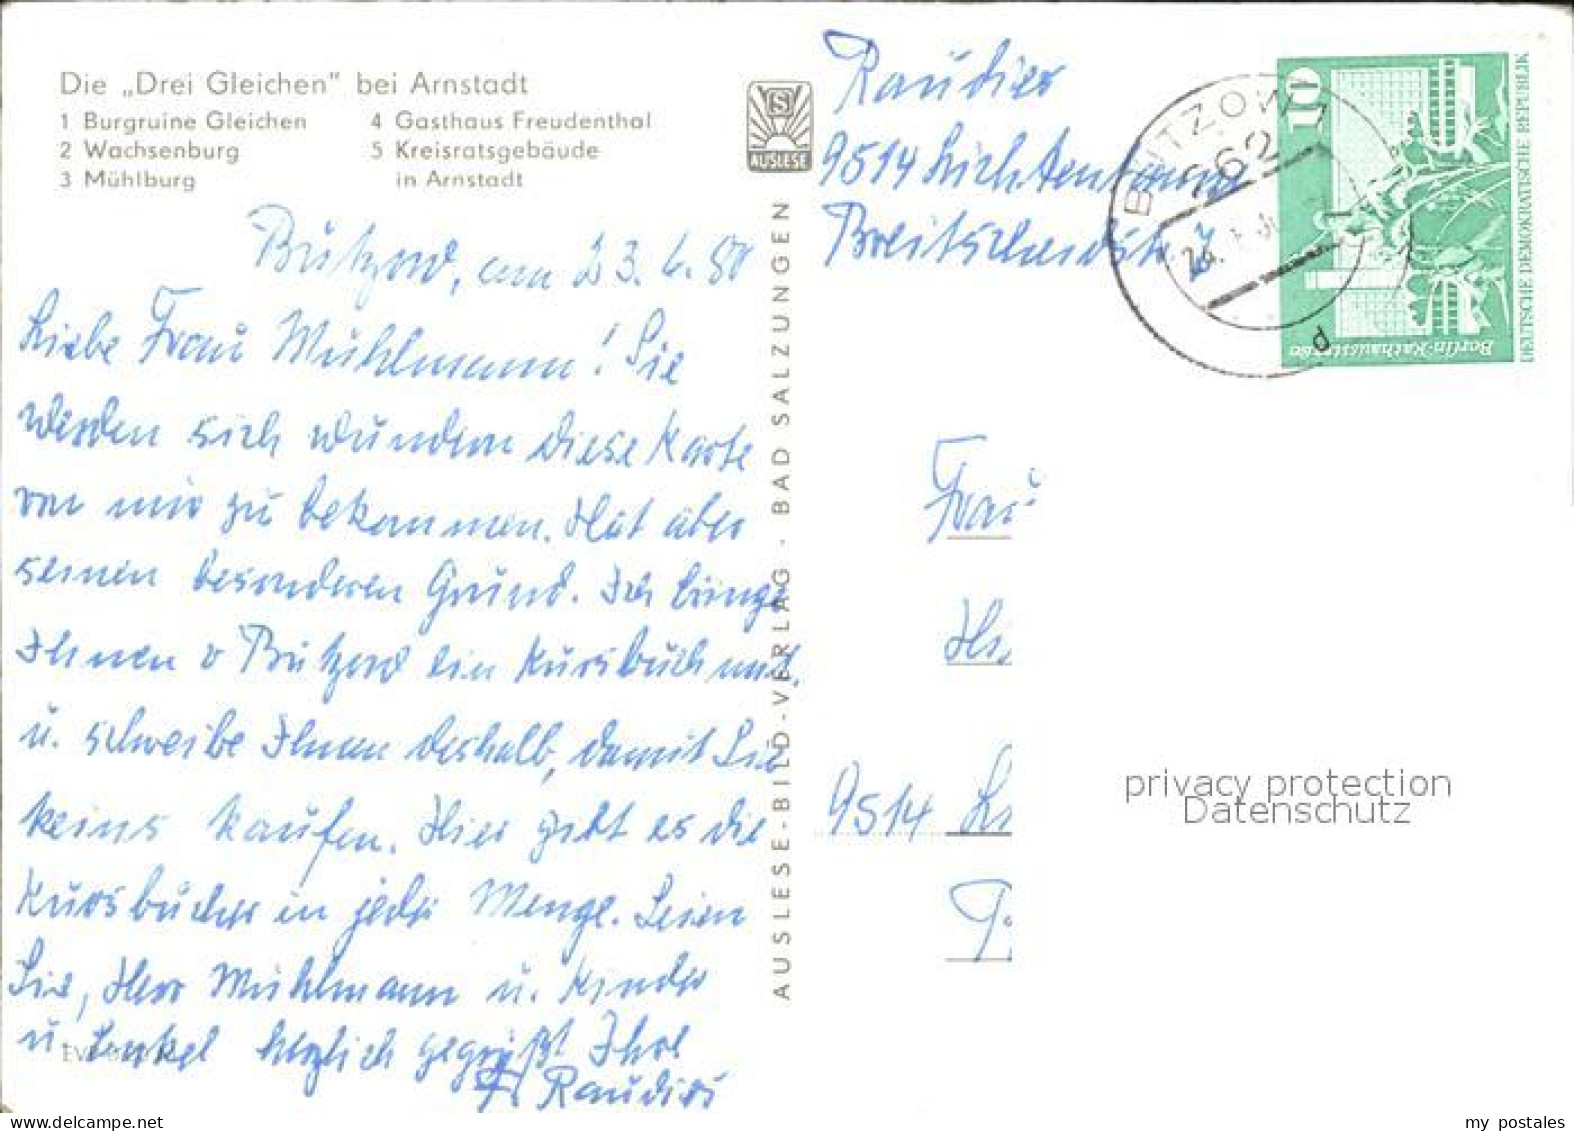 Die „Drei Gleichen" bei Arnstadt
1 Burgruine Gleichen
2 Wachsenburg
3 Mühlburg
4 Gasthaus Freudenthal
5 Kreisratsgebäude
in Arnstadt
S
AUSLESE
Bützow, am 23.6.80
Liebe Frau Mühlmann! Sie
werden sich wundern diese Karte
von mir zu bekommen. Hat aber
seinen besonderen Grund. Ich bringe
Ihnen v Bützow ein Kursbuch mit.
u. schreibe Ihnen deshalb, damit Sie
keins kaufen. Hier gibt es die
Kursbücher in jeder Menge. Seien
Sie, Herr Mühlmann u. Kinder
u. Enkel herzlich gegrüßt Ihre
Fr Raudies
AUSLESE-BILD-VERLAG · BAD SALZUNGEN
Raudies
9514
Breitscheidstr
BÜTZOW 1
262
24.
d
10
Berlin-Rathausstraße
DEUTSCHE DEMOKRATISCHE REPUBLIK
Frau
9514
privacy protection
Datenschutz
www.delcampe.net
my_postales